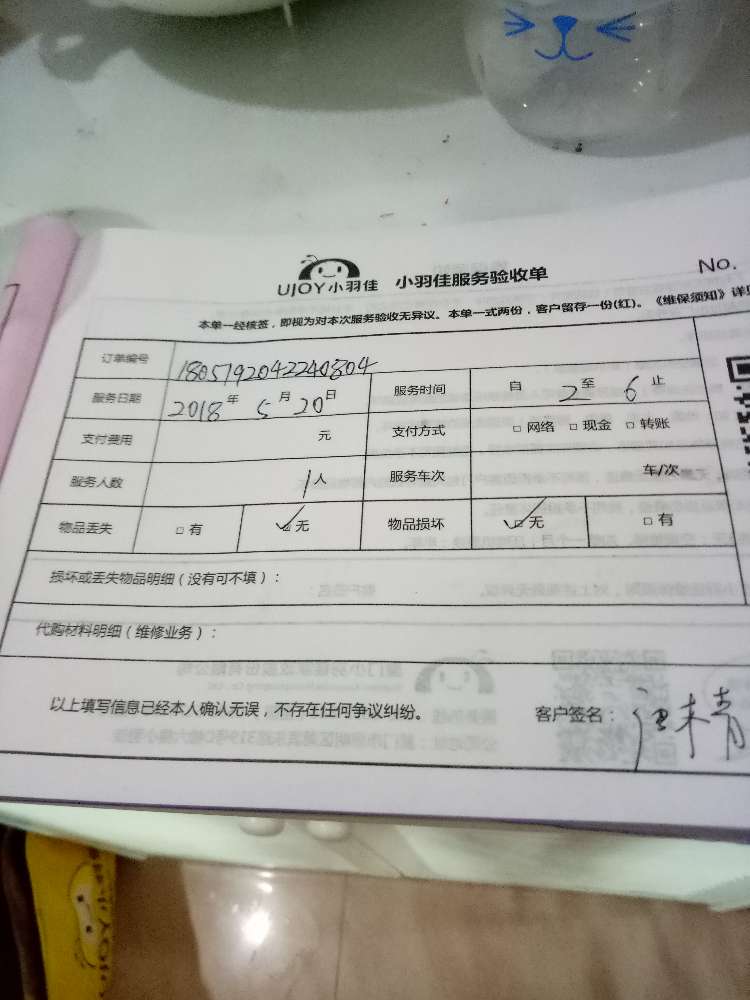 UJOY小羽佳 小羽佳服务验收单 No.
本单一经核签，即视为对本次服务验收无异议。本单一式两份，客户留存一份(红)。《维保须知》详见
订单编号 1805792042240804
服务日期 2018年5月20日 服务时间 自2至6止
支付费用 元 支付方式 □网络 □现金 □转账
服务人数 1人 服务车次 车/次
物品丢失 □有 ☑无 物品损坏 ☑无 □有
损坏或丢失物品明细（没有可不填）：
代购材料明细（维修业务）：
以上填写信息已经本人确认无误，不存在任何争议纠纷。 客户签名：